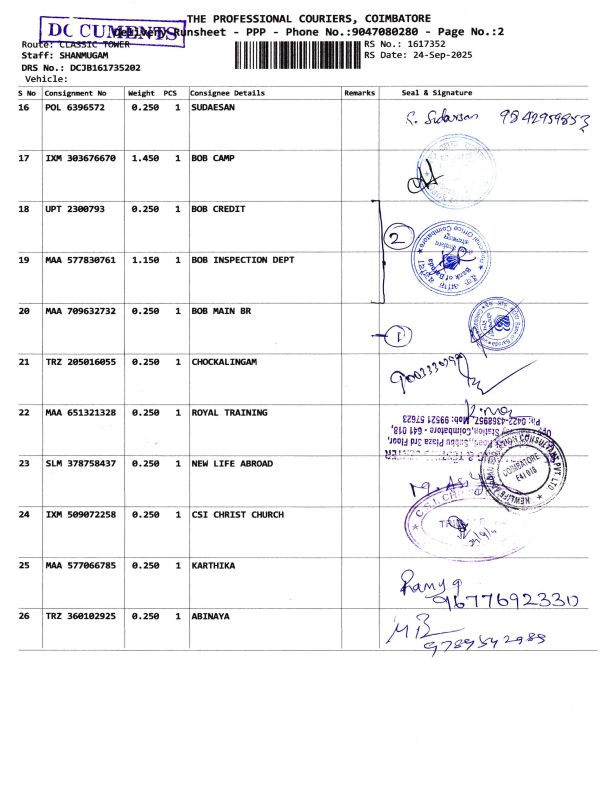 THE PROFESSIONAL COURIERS, COIMBATORE
DOCUMENTS
Delivery Runsheet - PPP - Phone No.:9047080280 - Page No.:2
Route: CLASSIC TOWER
RS No.: 1617352
Staff: SHANMUGAM
RS Date: 24-Sep-2025
DRS No.: DCJB161735202
Vehicle:
S No Consignment No Weight PCS Consignee Details Remarks Seal & Signature
16 POL 6396572 0.250 1 SUDAESAN
S. Sudarsan 9842959853
17 IXM 303676670 1.450 1 BOB CAMP
18 UPT 2300793 0.250 1 BOB CREDIT
2
Bank of Baroda
19 MAA 577830761 1.150 1 BOB INSPECTION DEPT
20 MAA 709632732 0.250 1 BOB MAIN BR
1
21 TRZ 205016055 0.250 1 CHOCKALINGAM
22 MAA 651321328 0.250 1 ROYAL TRAINING
Ph: 0422-4368957, Mob: 99521 57623
Station, Coimbatore - 641 018,
Subbu Plaza 3rd Floor,
23 SLM 378758437 0.250 1 NEW LIFE ABROAD
COIMBATORE
641018
24 IXM 509072258 0.250 1 CSI CHRIST CHURCH
C.S.I. CHRIST
25 MAA 577066785 0.250 1 KARTHIKA
9677692330
26 TRZ 360102925 0.250 1 ABINAYA
9789542989